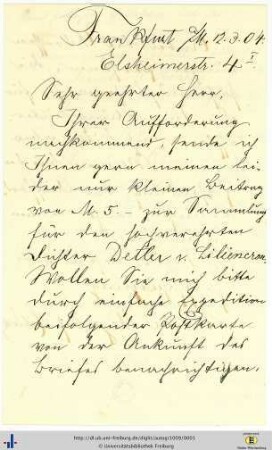 Frankfurt /M. 12.3.04.
Elsheimerstr. 4 I
Sehr geehrter Herr.
Ihrer Aufforderung
nachkommend, sende ich
Ihnen gern meinen lei-
der nur kleinen Beitrag
von M. 5.– zur Sammlung
für den hochverehrten
Dichter Detlev v. Liliencron.
Wollen Sie mich bitte
durch einfache Expedition
beifolgender Postkarte
von der Ankunft des
Briefes benachrichtigen.
© Universitätsbibliothek Freiburg